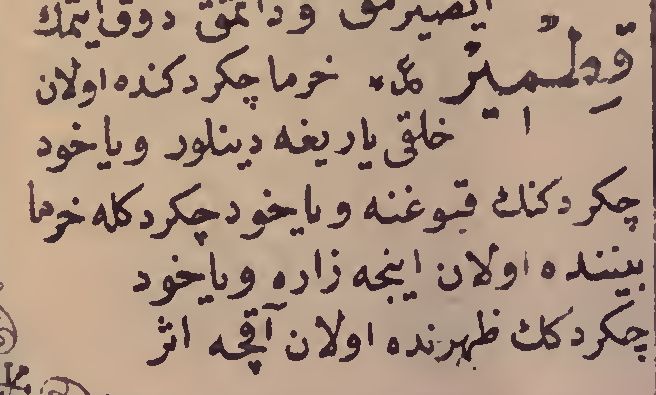 ايصيرمق و داتمق ذوق ايتمك
قِطْمِيرْ عـ خرما چكردكنده اولان
خلقى ياريغه دينلور وياخود
چكردكنك قبوغنه وياخود چكردكله خرما
بيننده اولان اينجه زاره وياخود
چكردكك ظهرنده اولان آقچه اثر